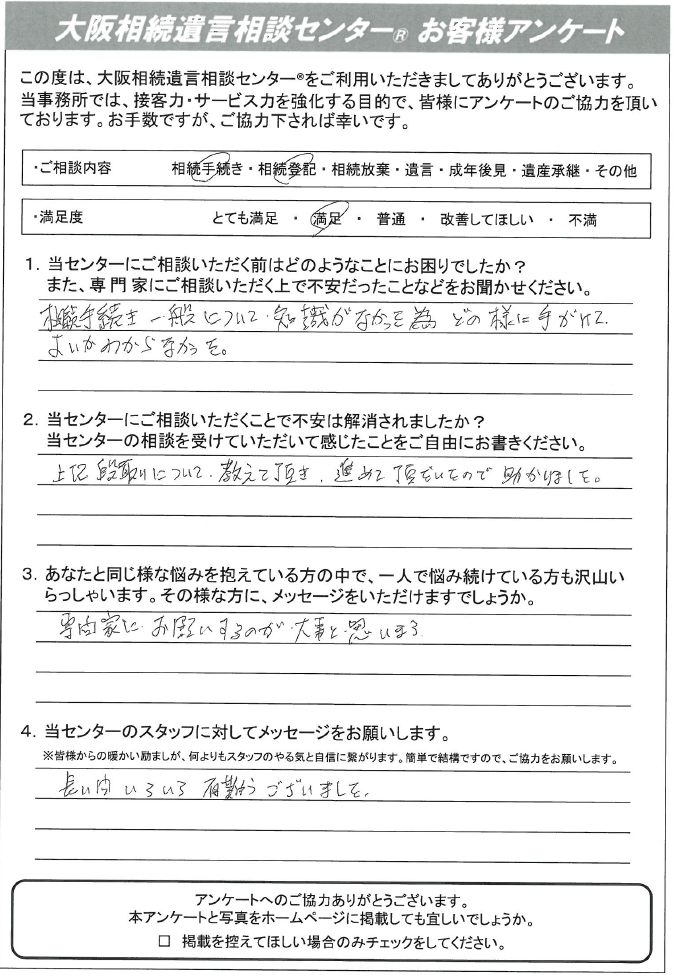 大阪相続遺言相談センター® お客様アンケート
この度は、大阪相続遺言相談センター®をご利用いただきましてありがとうございます。
当事務所では、接客力・サービス力を強化する目的で、皆様にアンケートのご協力を頂い
ております。お手数ですが、ご協力下されば幸いです。
・ご相談内容 相続手続き・相続登記・相続放棄・遺言・成年後見・遺産承継・その他
・満足度 とても満足 ・ 満足 ・ 普通 ・ 改善してほしい ・ 不満
1. 当センターにご相談いただく前はどのようなことにお困りでしたか?
また、専門家にご相談いただく上で不安だったことなどをお聞かせください。
相続手続き一般について、知識がなかった為 どの様に手がけて
よいかわからなかった。
2. 当センターにご相談いただくことで不安は解消されましたか?
当センターの相談を受けていただいて感じたことをご自由にお書きください。
上記段取りについて、教えて頂き、進めて頂だいたので助かりました。
3. あなたと同じ様な悩みを抱えている方の中で、一人で悩み続けている方も沢山い
らっしゃいます。その様な方に、メッセージをいただけますでしょうか。
専門家に お願いするのが 大事と思います
4. 当センターのスタッフに対してメッセージをお願いします。
※皆様からの暖かい励ましが、何よりもスタッフのやる気と自信に繋がります。簡単で結構ですので、ご協力をお願いします。
長い間 いろいろ 有難う ございました。
アンケートへのご協力ありがとうございます。
本アンケートと写真をホームページに掲載しても宜しいでしょうか。
□ 掲載を控えてほしい場合のみチェックをしてください。